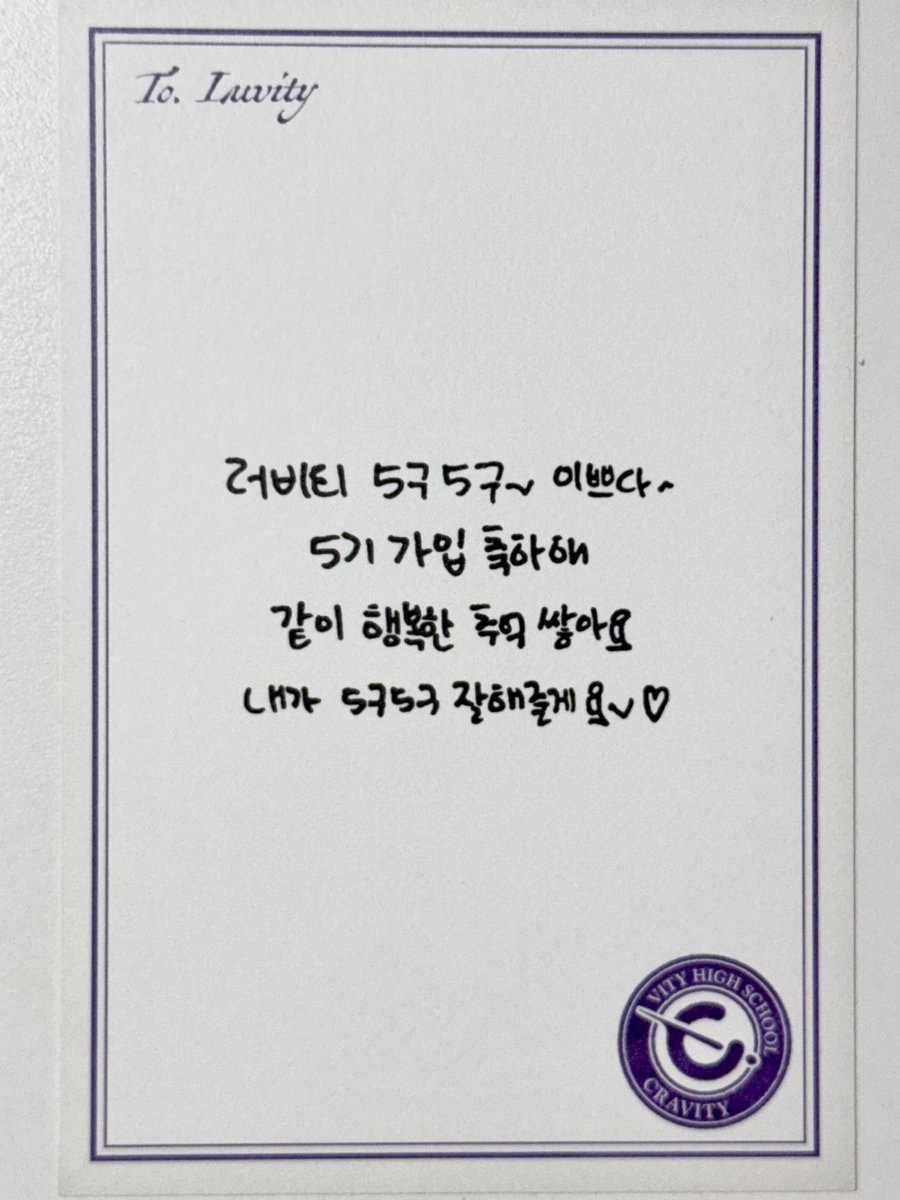 To. Luvity
러비티 5구5구~ 이쁘다~
5기 가입 축하해
같이 행복한 추억 쌓아요
내가 5구5구 잘해줄게요~♡
VITY HIGH SCHOOL
CRAVITY